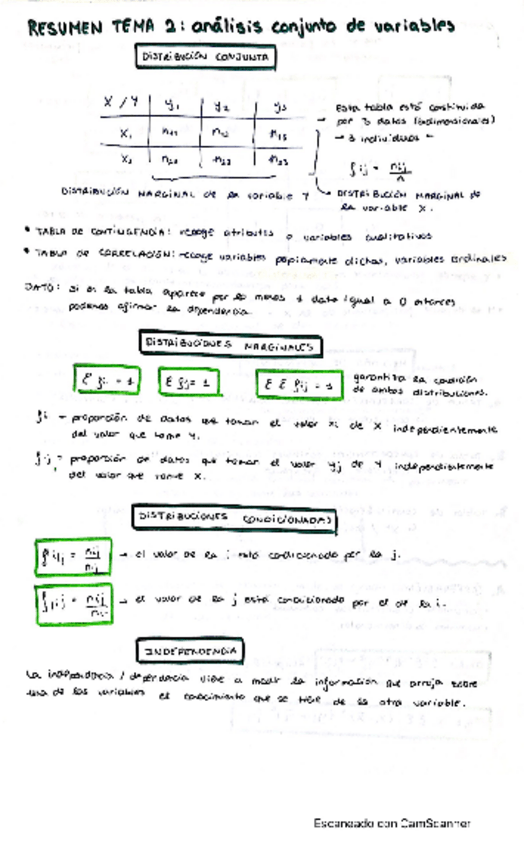 RESUMEN TEMA 2: análisis conjunto de variables
DISTRIBUCIÓN CONJUNTA
X / Y y1 y2 y3
x1 n11 n12 n13
x2 n21 n22 n23
→ Esta tabla está constituida
por 3 datos (bidimensionales)
→ 3 individuos
fij = nij / n
DISTRIBUCIÓN MARGINAL DE la variable Y
DISTRIBUCIÓN MARGINAL de
la variable X.
• TABLA DE CONTINGENCIA: recoge atributos o variables cualitativos
• TABLA DE CORRELACIÓN: recoge variables propiamente dichas, variables ordinales
DATO: si en la tabla aparece por lo menos 1 dato igual a 0 entonces
podemos afirmar la dependencia.
DISTRIBUCIONES MARGINALES
Σ fi. = 1
Σ f.j = 1
Σ Σ fij = 1
garantiza la condición
de ambas distribuciones.
fi. → proporción de datos que toman el valor xi de X independientemente
del valor que tome Y.
f.j → proporción de datos que toman el valor yj de Y independientemente
del valor que tome X.
DISTRIBUCIONES CONDICIONADAS
fi|j = nij / n.j → el valor de la i está condicionado por la j.
fj|i = nij / ni. → el valor de la j está condicionado por el de la i.
INDEPENDENCIA
La independencia / dependencia viene a medir la información que arroja sobre
una de las variables el conocimiento que se tiene de la otra variable.
Escaneado con CamScanner